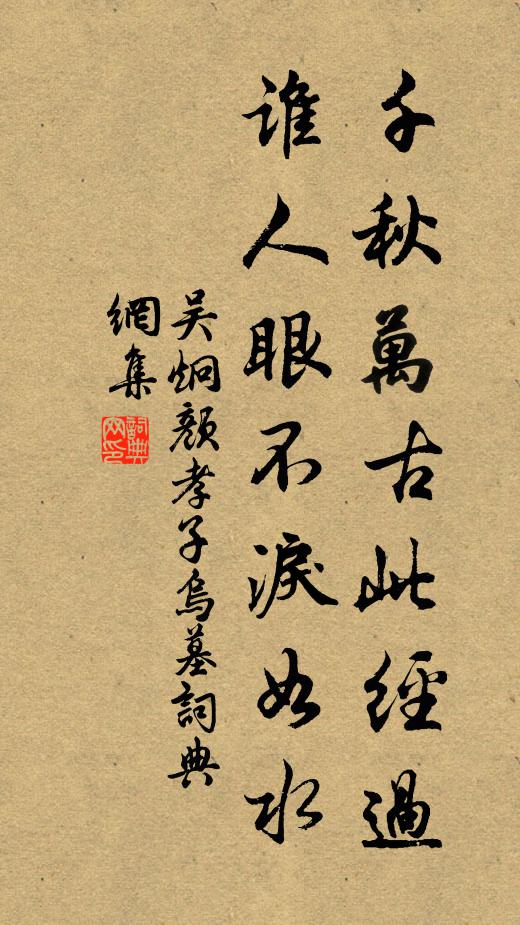 千秋萬古此經過
谁人眼不淚如水
吴炯颜孝子烏墓詞典
網集
詞典網印